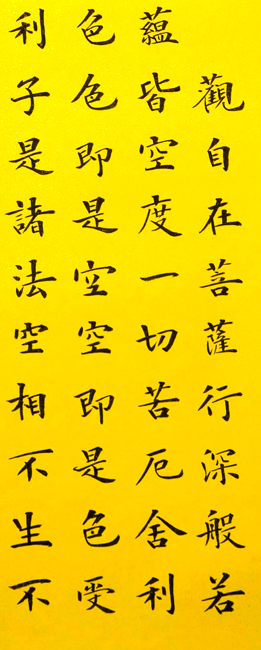 觀自在菩薩行深般若
蘊皆空度一切苦厄舍利
色色即是空空即是色受
利子是諸法空相不生不